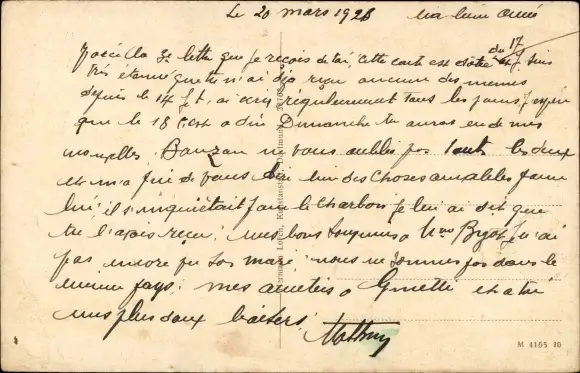 Le 20 mars 1923 ma bien aimée
Voici la 3e lettre que je reçois de toi, cette carte est datée du 17 je suis
très étonné que tu n'ai déjà reçu aucun des miennes
depuis le 14 je t'ai écris régulièrement tous les jours j'espère
que le 18 c'est a dire Dimanche tu auras eu de mes
nouvelles. Bauzan ne vous oublie pas toutes les deux
et m'a prié de vous dire bien des choses aimables pour
lui; il s'inquiétait pour le charbon je lui ai dit que
tu l'avais reçu; mes bons toujours a Mme je n'ai
pas encore pu son mari nous ne sommes pas dans le
même pays; mes amitiés a Ginette et a toi
mes plus doux baisers
M 4165 26